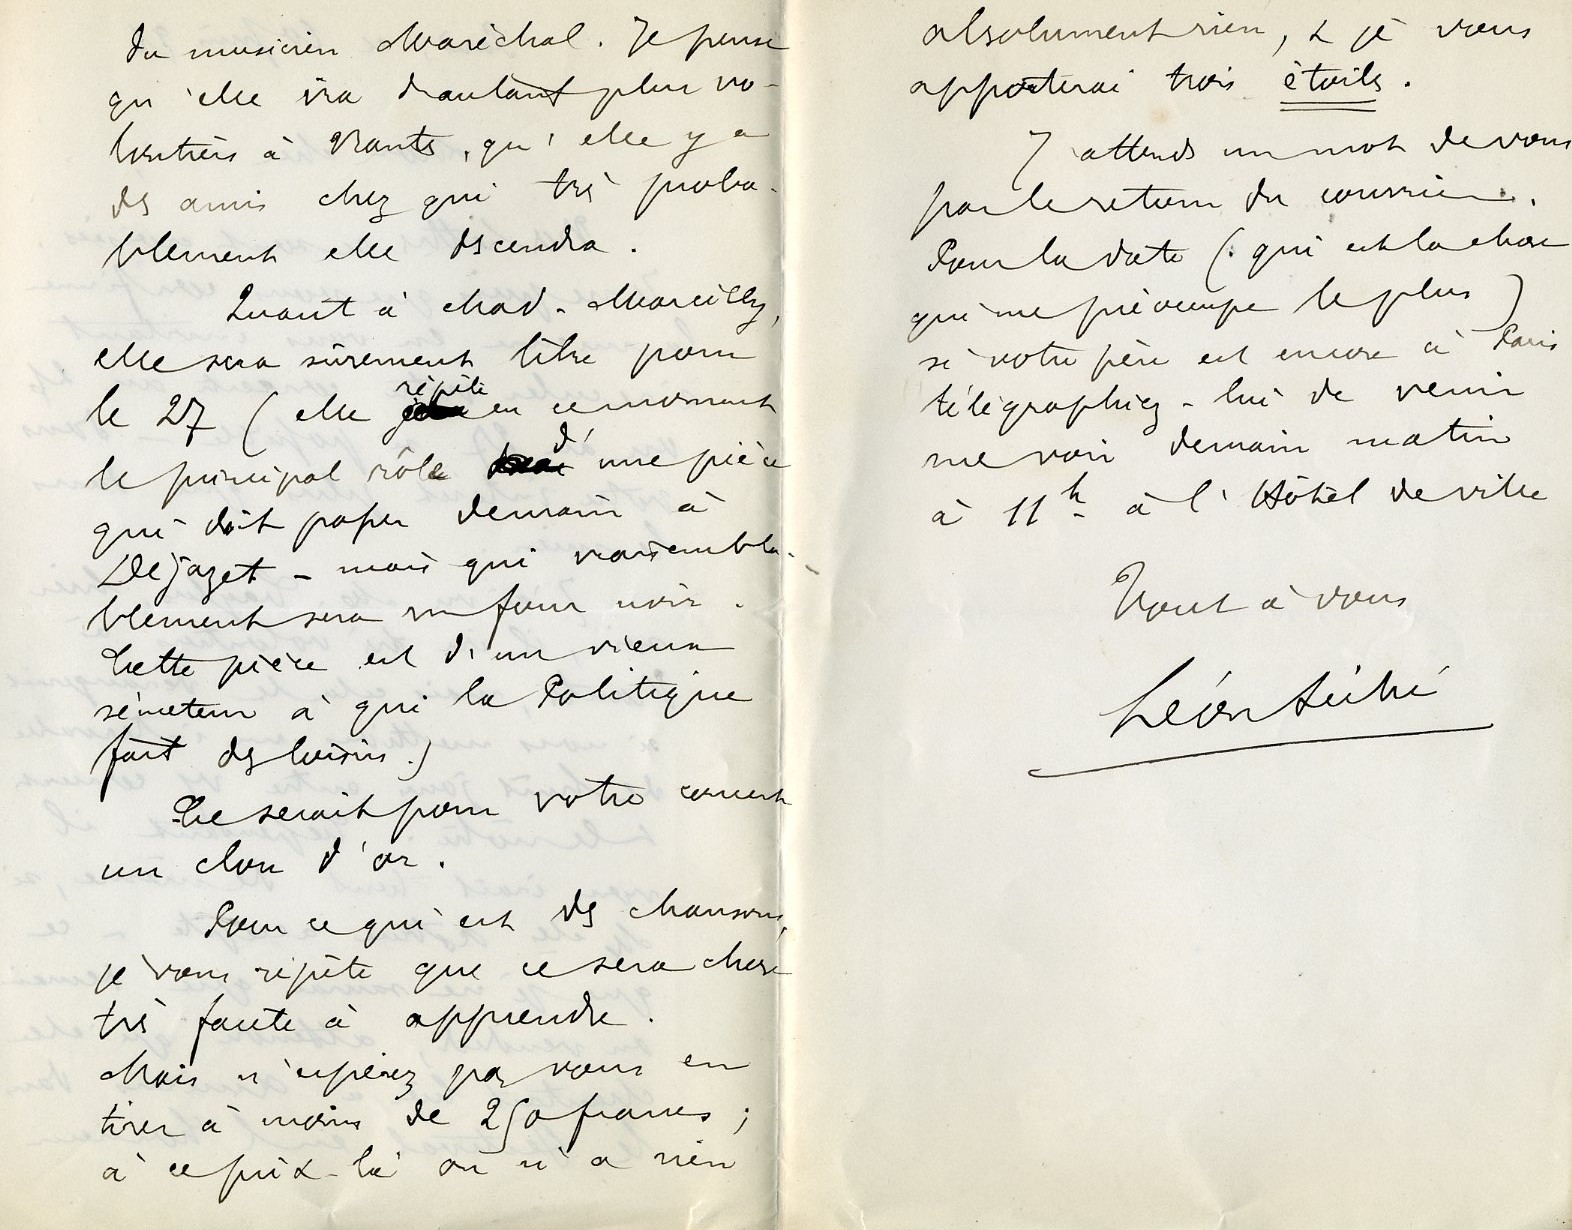 du musicien Maréchal. Je pense
qu'elle ira d'autant plus vo-
lontiers à Nantes, qu'elle y a
des amis chez qui très proba-
blement elle descendra.
Quant à Mad. Marcilly,
elle sera sûrement libre pour
le 27 (elle répète en ce moment
le principal rôle d'une pièce
qui doit passer demain à
Déjazet - mais qui vraisembla-
blement sera un four noir.
Cette pièce est d'un vieux
sénateur à qui la Politique
fait des loisirs.)
Ce serait pour votre concert
un clou d'or.
Pour ce qui est des chansons,
je vous répète que ce sera chose
très facile à apprendre.
Mais n'espérez pas vous en
tirer à moins de 250 francs;
à ce prix-là on n'a rien
absolument rien, & je vous
apporterai trois étoiles.
J'attends un mot de vous
par le retour du courrier.
Pour la date (qui est la chose
qui me préoccupe le plus)
si votre père est encore à Paris
télégraphiez-lui de venir
me voir demain matin
à 11h à l'Hôtel de ville
Tout à vous
Léon Séché